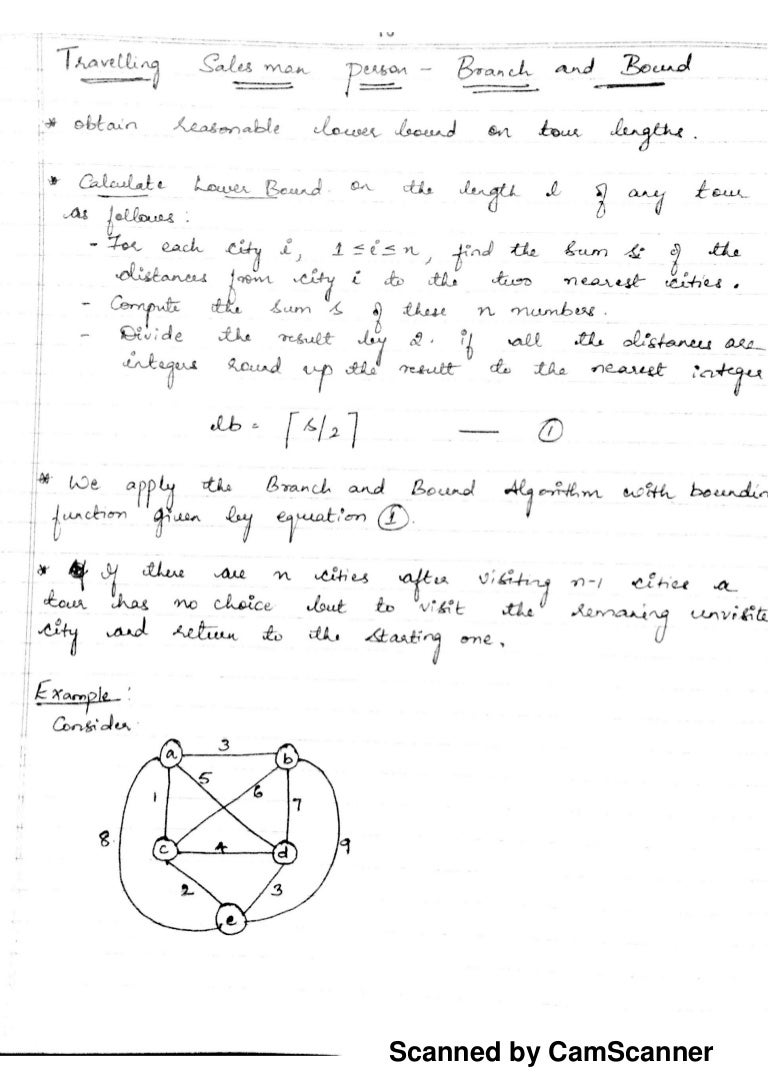 10
Travelling Sales man person - Branch and Bound
* obtain reasonable lower bound on tour lengths.
* Calculate Lower Bound on the length l of any tour
as follows :
- For each city i, 1 ≤ i ≤ n, find the sum si of the
distances from city i to the two nearest cities.
- Compute the sum s of these n numbers.
- Divide the result by 2. if all the distances are
integers round up the result to the nearest integer
lb = ⌈s/2⌉ — ①
* We apply the Branch and Bound Algorithm with boundin
function given by equation ①.
* If there are n cities after visiting n-1 cities a
tour has no choice but to visit the remaning unvisite
city and return to the starting one.
Example :
Consider
a 3 b
5
1 6 7
8 c 4 d 9
2 3
e
Scanned by CamScanner